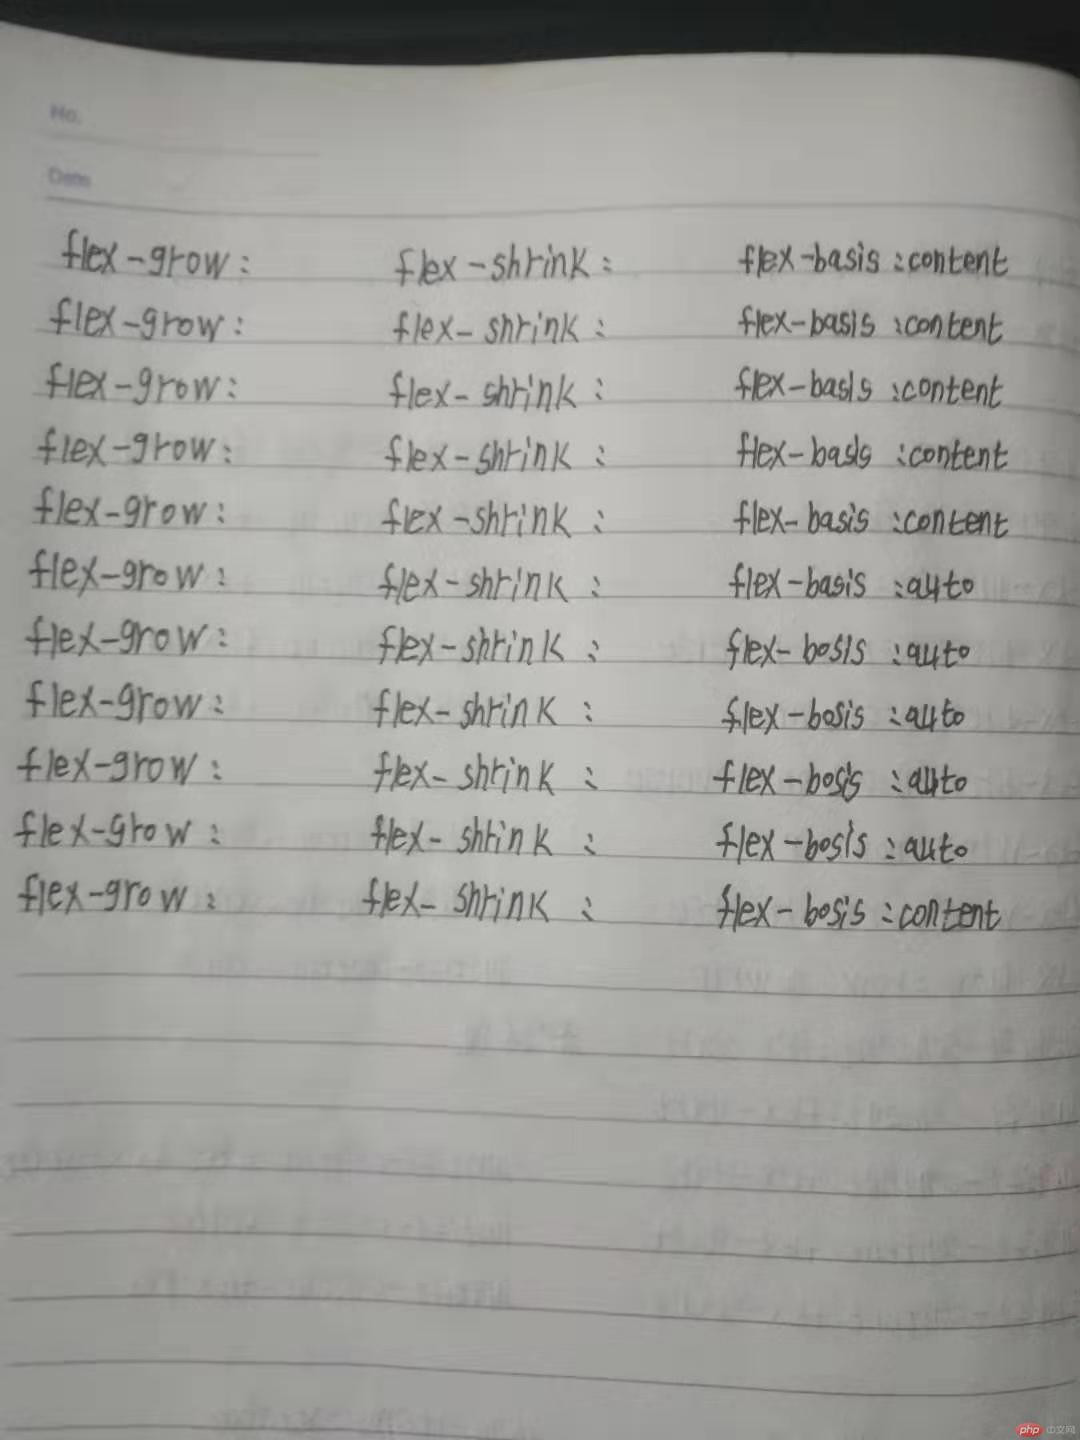 No.
Date
flex-grow: flex-shrink: flex-basis:content
flex-grow: flex-shrink: flex-basis:content
flex-grow: flex-shrink: flex-basis:content
flex-grow: flex-shrink: flex-basis:content
flex-grow: flex-shrink: flex-basis:content
flex-grow: flex-shrink: flex-basis:auto
flex-grow: flex-shrink: flex-bosis:auto
flex-grow: flex-shrink: flex-bosis:auto
flex-grow: flex-shrink: flex-bosis:auto
flex-grow: flex-shrink: flex-bosis:auto
flex-grow: flex-shrink: flex-bosis:content
php 中文网